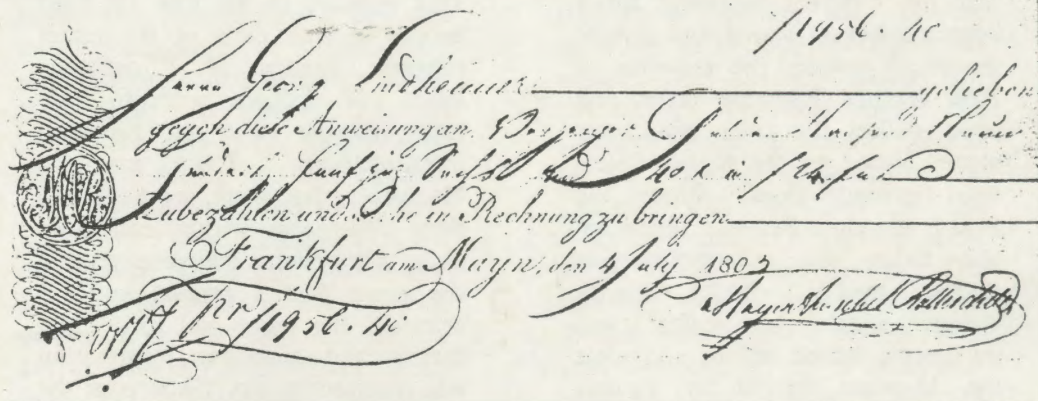 f 1956. 40
Herrn Georg Lindheimer gelieben
gegen diese Anweisung an Vorzeiger Gulden Tausend Neun
hundert fünfzig Sechs und 40 x in f 24 fus
zubezahlen und solche in Rechnung zu bringen
Frankfurt am Mayn, den 4 July 1803
Mayer Amschel Rothschild
pr f 1956. 40